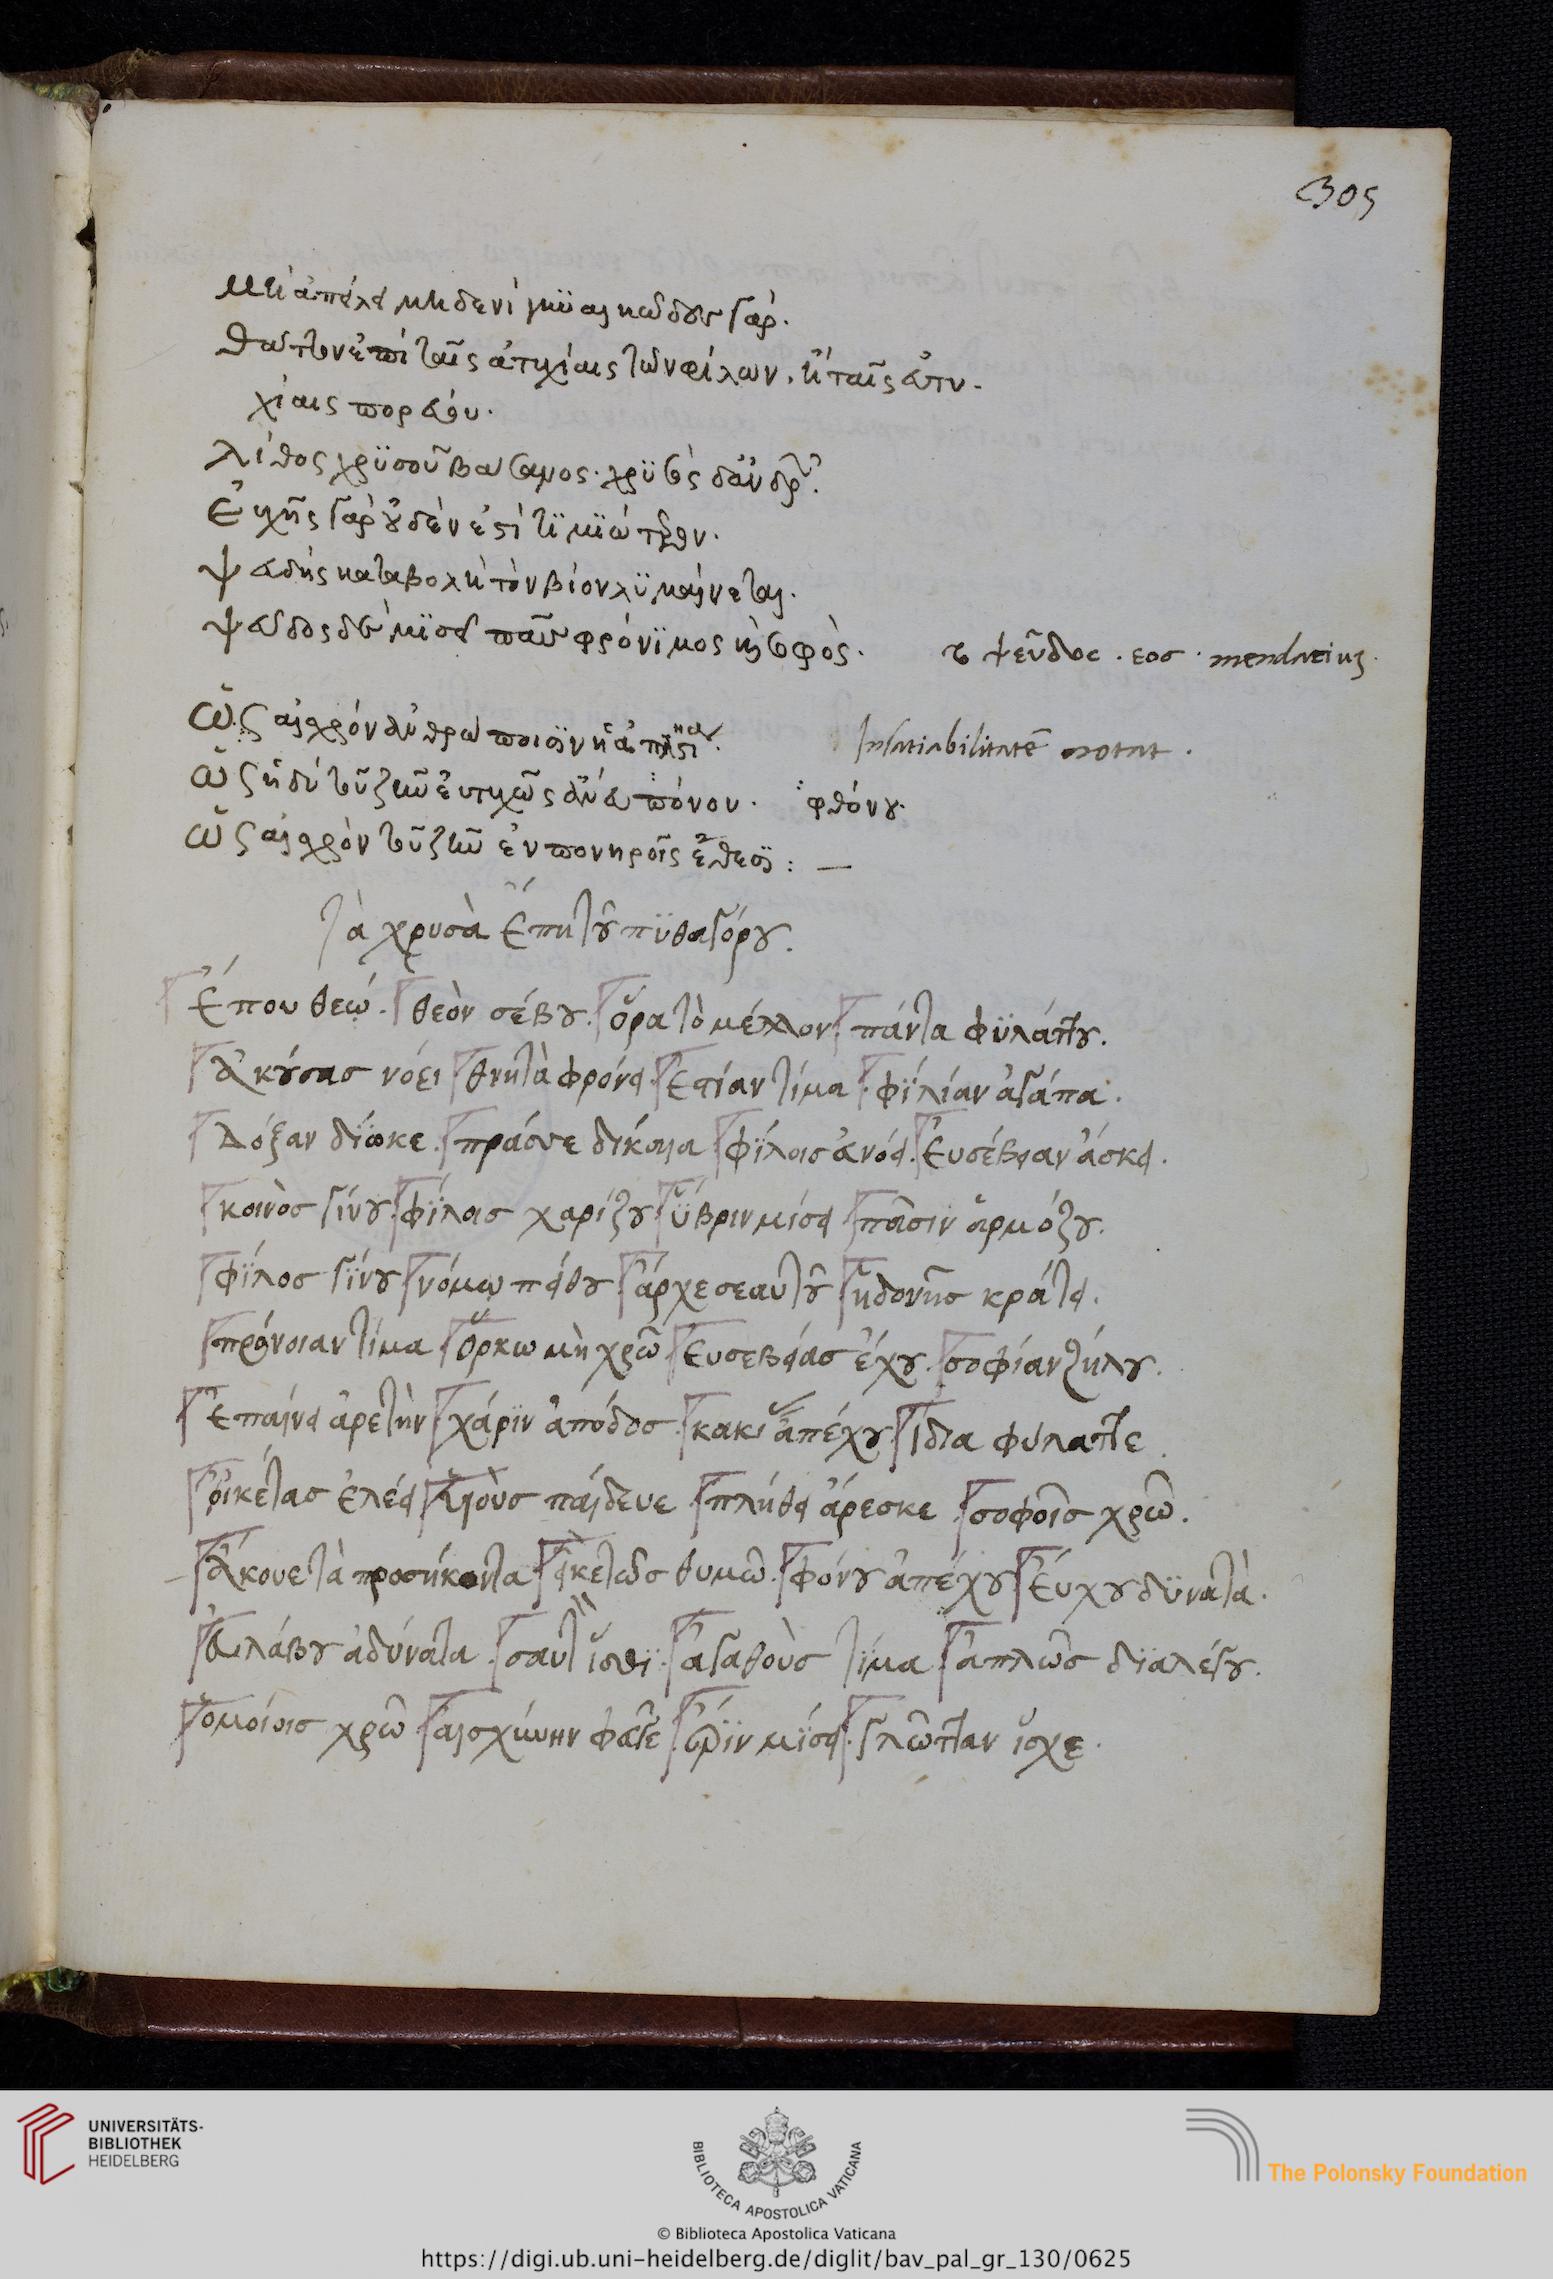 305
μὴ ἀπείλει μηδενί γυναικῶδες γάρ.
θᾶττον ἐπὶ ταῖς ἀτυχίαις τῶν φίλων. ἢ ταῖς εὐτυ-
χίαις πορεύου.
λίθος χρϋσοῦ βάσανος. χρϋσὸς δ' ἀνδρ
Εὐχῆς γὰρ οὐδέν ἐστί τϊμϊώτερον.
ψευδὴς καταβολὴ τὸν βίον λϋμαίνεται.
ψεῦδος δὲ μϊσεῖ πᾶς φρόνϊμος καὶ σοφὸς. τὸ ψεῦδος . εος . mendacium.
Ὡς αἰσχρόν ἀνθρώποισϊν ἡ ἀπληστία. Insatiabilitatē notat.
Ὡς ἡδύ τὸ ζῆν εὐτυχῶς ἄνευ πόνου. φθόνου.
Ὡς αἰσχρὸν τὸ ζῆν ἐν πονηροῖς ἔθεσϊ: —
τὰ χρυσὰ ἔπη τοῦ πϋθαγόρου.
Ἕπου θεῷ. θεὸν σέβου. ὅρα τὸ μέλλον. πάντα φϋλάττου.
Ἀκούσας νόει θνητὰ φρόνει. Ἑστίαν τίμα. φϊλίαν ἀγάπα.
Δόξαν δϊωκε. πράσσε δίκαια φϊλοις εὐνόει. Εὐσέβειαν ἄσκει.
κοινὸς γίνου. φϊλοις χαρίζου ὕβριν μίσει πᾶσιν ἁρμόζου.
φϊλος γϊνου νόμω πείθου ἄρχε σεαυτοῦ ἡδονῆς κράτει.
πρόνοιαν τίμα ὅρκω μὴ χρῶ Εὐσεβείας ἔχου. σοφίαν ζήλου.
Ἐπαίνει ἀρετὴν χάρϊν ἀπόδος. κακί ἀπέχου. ἴδια φυλαττε
οἰκέτας ἐλέει υἱοὺς παίδευε πλήθει ἄρεσκε σοφοῖς χρῶ.
Ἄκουε τὰ προσήκοντα θυμῶ. φόνου ἀπέχου Εὔχου δϋνατὰ.
ἀδύνατα. ἴσθϊ. ἀγαθοὺς τϊμα ἁπλῶς δϊαλέγου.
ὁμοίοις χρῶ αἰσχύνην φεῦγε μϊσει. γλῶτταν ἴσχε.
UNIVERSITÄTS-
BIBLIOTHEK
HEIDELBERG
BIBLIOTECA APOSTOLICA VATICANA
The Polonsky Foundation
© Biblioteca Apostolica Vaticana
https://digi.ub.uni-heidelberg.de/diglit/bav_pal_gr_130/0625